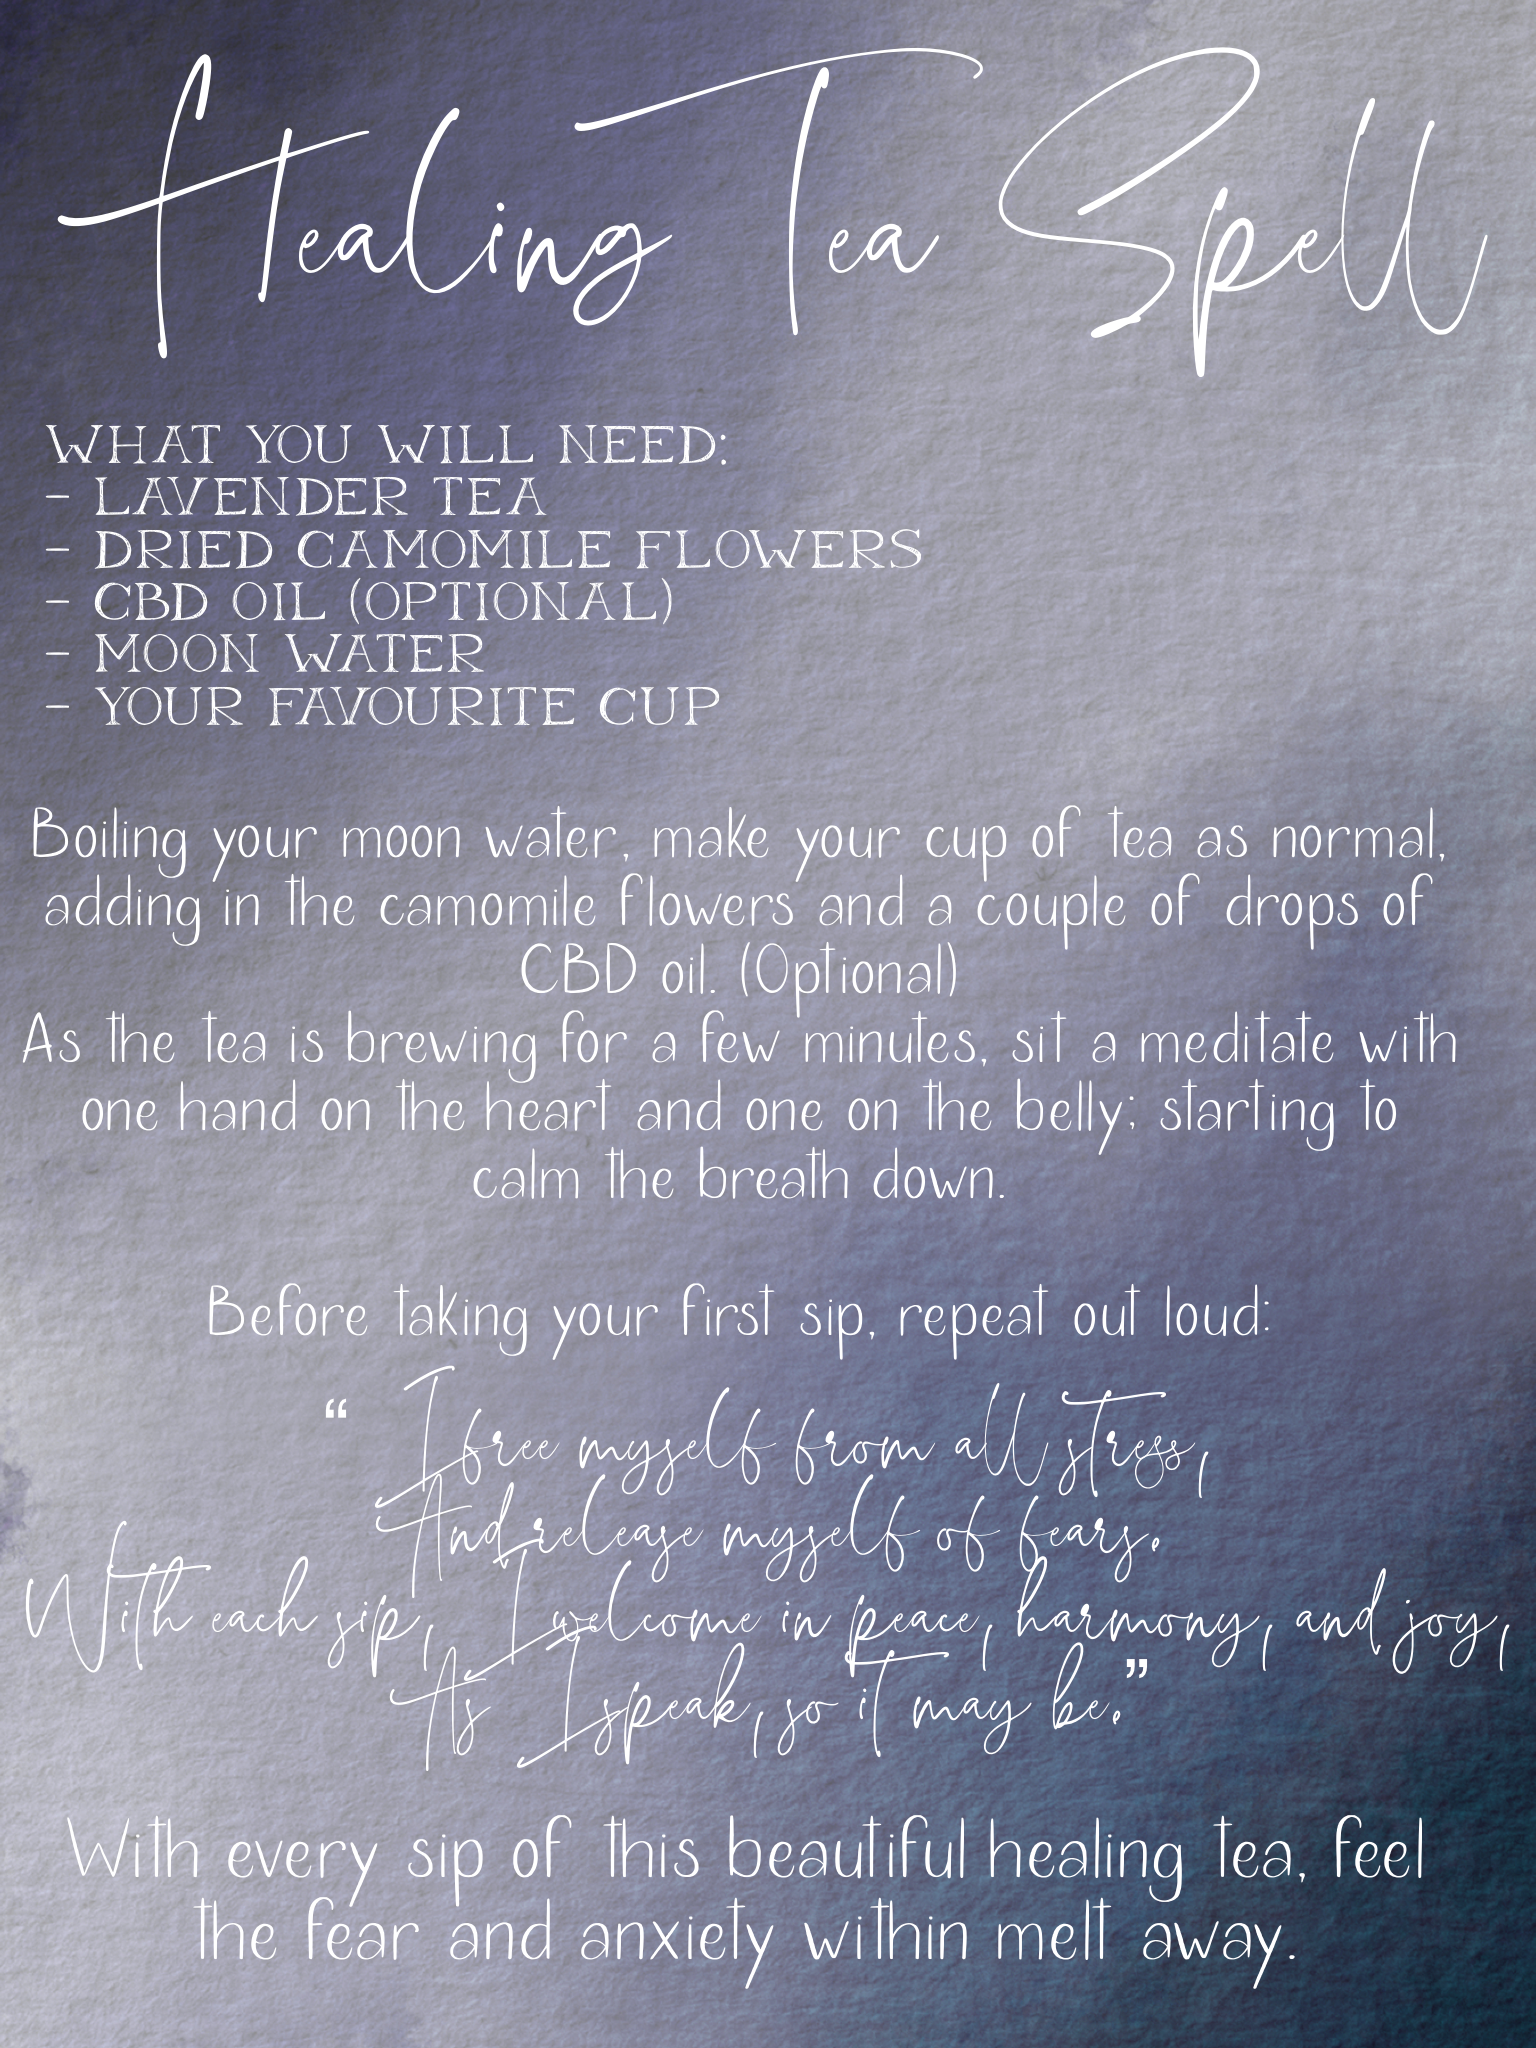 Healing Tea Spell
WHAT YOU WILL NEED:
- LAVENDER TEA
- DRIED CAMOMILE FLOWERS
- CBD OIL (OPTIONAL)
- MOON WATER
- YOUR FAVOURITE CUP
Boiling your moon water, make your cup of tea as normal,
adding in the camomile flowers and a couple of drops of
CBD oil. (Optional)
As the tea is brewing for a few minutes, sit a meditate with
one hand on the heart and one on the belly; starting to
calm the breath down.
Before taking your first sip, repeat out loud:
“ I free myself from all stress,
And release myself of fears.
With each sip, I welcome in peace, harmony, and joy,
As I speak, so it may be.”
With every sip of this beautiful healing tea, feel
the fear and anxiety within melt away.